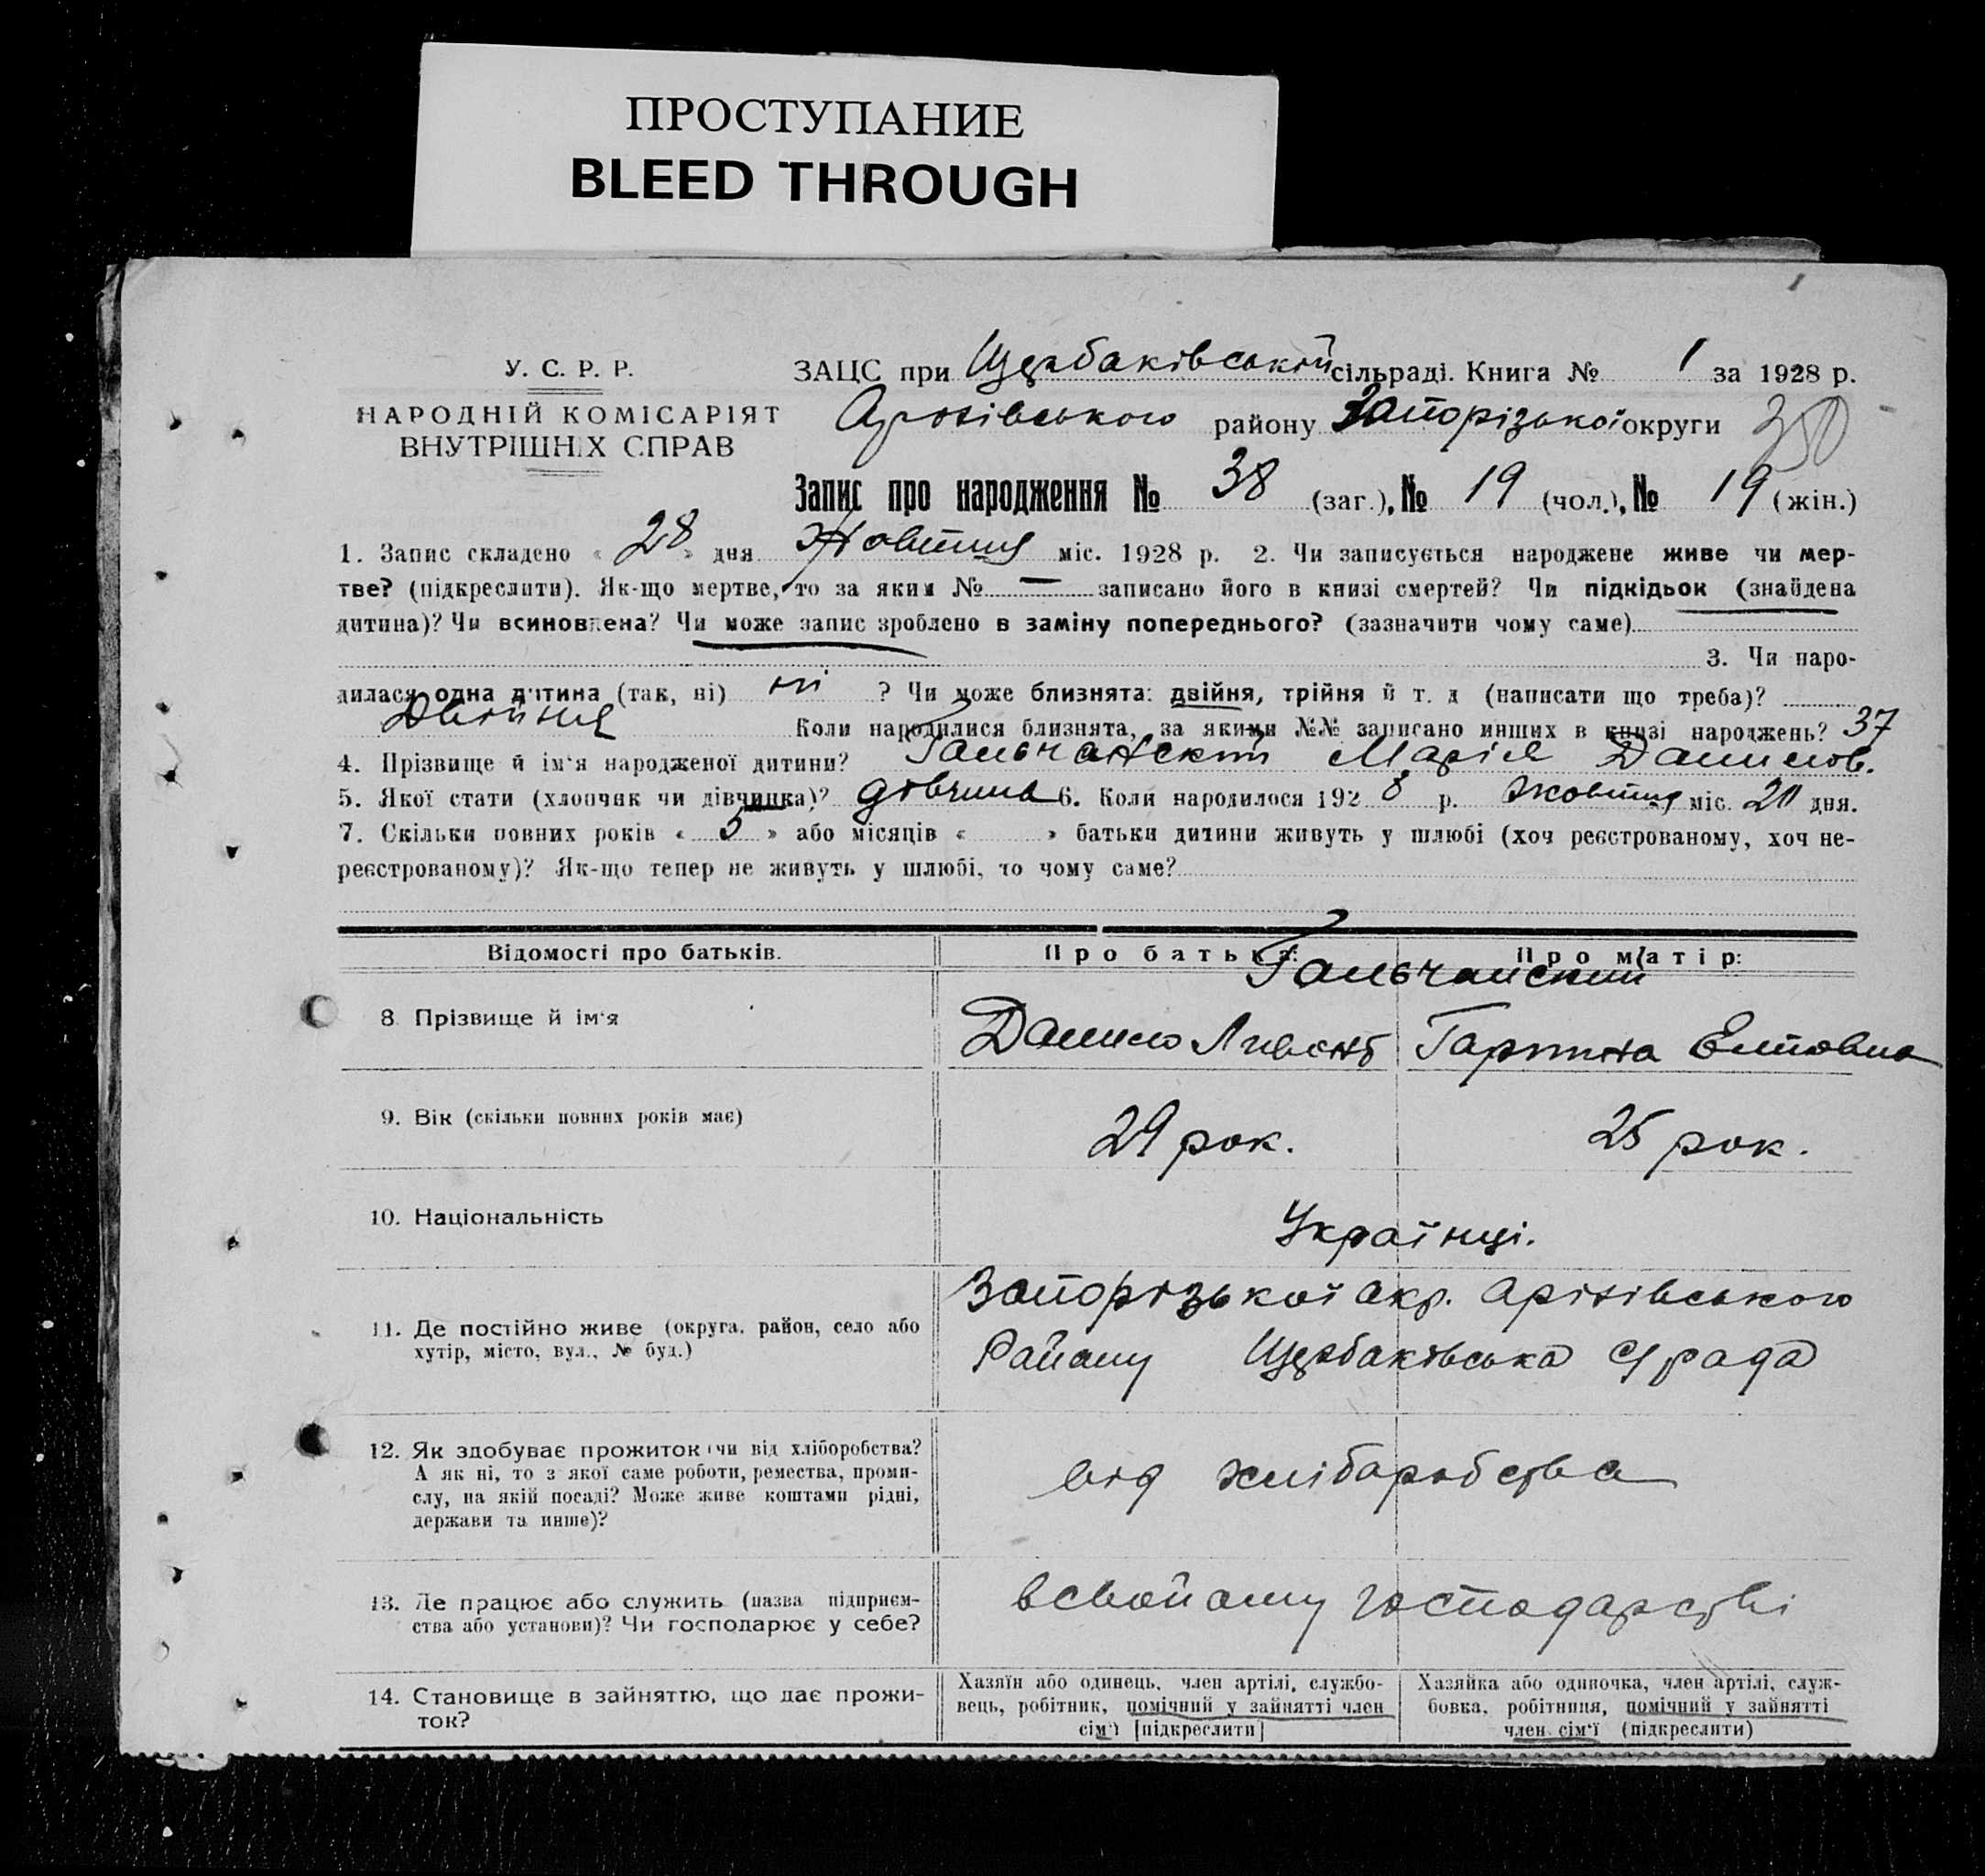 ПРОСТУПАНИЕ
BLEED THROUGH
1
У. С. Р. Р.
НАРОДНІЙ КОМІСАРІЯТ
ВНУТРІШНІХ СПРАВ
ЗАЦС при Щербаківській сільраді. Книга № 1 за 1928 р.
району Запорізької округи 350
Запис про народження № 38 (заг.), № 19 (чол.), № 19 (жін.)
1. Запис складено « 28 » дня Жовтня міс. 1928 р. 2. Чи записується народжене живе чи мер-
тве? (підкреслити). Як-що мертве, то за яким № — записано його в книзі смертей? Чи підкідьок (знайдена
дитина)? Чи всиновлена? Чи може запис зроблено в заміну попереднього? (зазначити чому саме)
3. Чи наро-
дилася одна дитина (так, ні) ні ? Чи може близнята: двійня, трійня й т. д (написати що треба)?
Двойня Коли народилися близнята, за якими №№ записано инших в книзі народжень? 37
4. Прізвище й ім'я народженої дитини? Гальчанский Марія Данилов.
5. Якої статі (хлопчик чи дівчинка)? дівчина 6. Коли народилося 1928 р. жовтня міс. 20 дня.
7. Скільки повних років « 5 » або місяців « » батьки дитини живуть у шлюбі (хоч реєстрованому, хоч не-
реєстрованому)? Як-що тепер не живуть у шлюбі, то чому саме?
Відомості про батьків.
Про батька:
Про матір:
Гальчанский
8 Прізвище й ім'я
Данило
9. Вік (скільки повних років має)
29 рок.
25 рок.
10. Національність
Українці.
11. Де постійно живе (округа, район, село або
хутір, місто, вул., № буд.)
Запорізької окр. Оріхівського
Району Щербаківська с/рада
12. Як здобуває прожиток (чи від хліборобства?
А як ні, то з якої саме роботи, ремества, проми-
слу, на якій посаді? Може живе коштами рідні,
держави та инше)?
від хліборобства
13. Де працює або служить (назва підприєм-
ства або установи)? Чи господарює у себе?
в свойому господарстві
14. Становище в зайняттю, що дає прожи-
ток?
Хазяїн або одинець, член артілі, службо-
вець, робітник, помічний у зайнятті член
сім'ї [підкреслити]
Хазяйка або одиночка, член артілі, служ-
бовка, робітниця, помічний у зайнятті
член сім'ї (підкреслити)